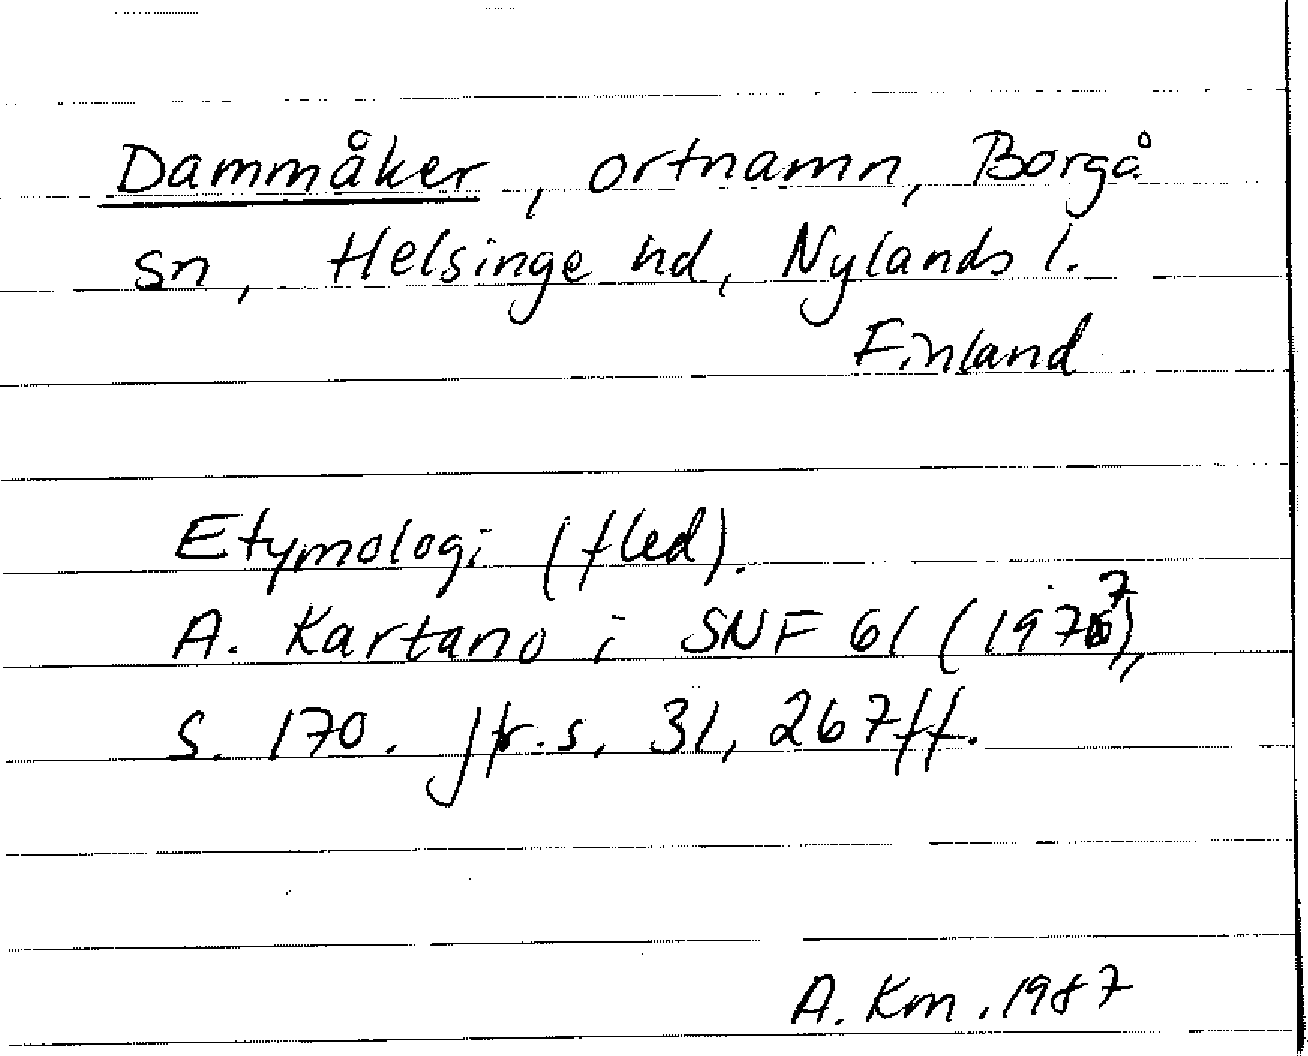 Dammåker, ortnamn, Borgå
sn, Helsinge hd, Nylands l.
Finland
Etymologi (fled).
A. Kartano i SNF 61 (1977),
s. 170. Jfr. s. 31, 267 ff.
A. Km. 1987